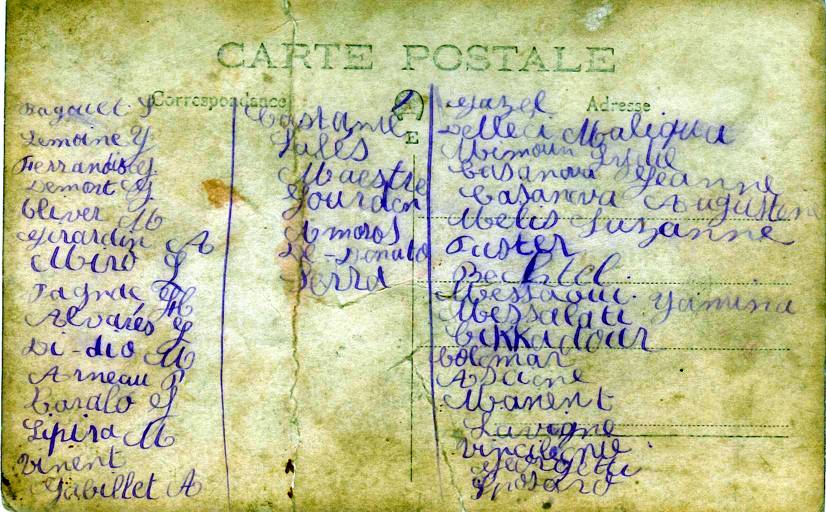 CARTE POSTALE
Correspondance
Adresse
A
E
Bagouet J
Lemoine Y
Ferrandis J
Demort J
Oliver M
Girardin A
Miro J
Tagnac H
Alvarés J
Di-dio M
Arneau P
Baralo J
Lipira M
Vinent
Gabillet A
Castanié
Salés
Maestre
Gourdon
Amoros
De-Donato
Serra
Gazel
Delleci Maliqua
Mimoun
Casanova Jeanne
Casanova Augustine
Melis Suzanne
Fuster
Bechtel.
Messaoui. Yamina
Messalati
Cikkadour
Colomar
Ascine
Manent
Lavigne
Georgette
Sposaro